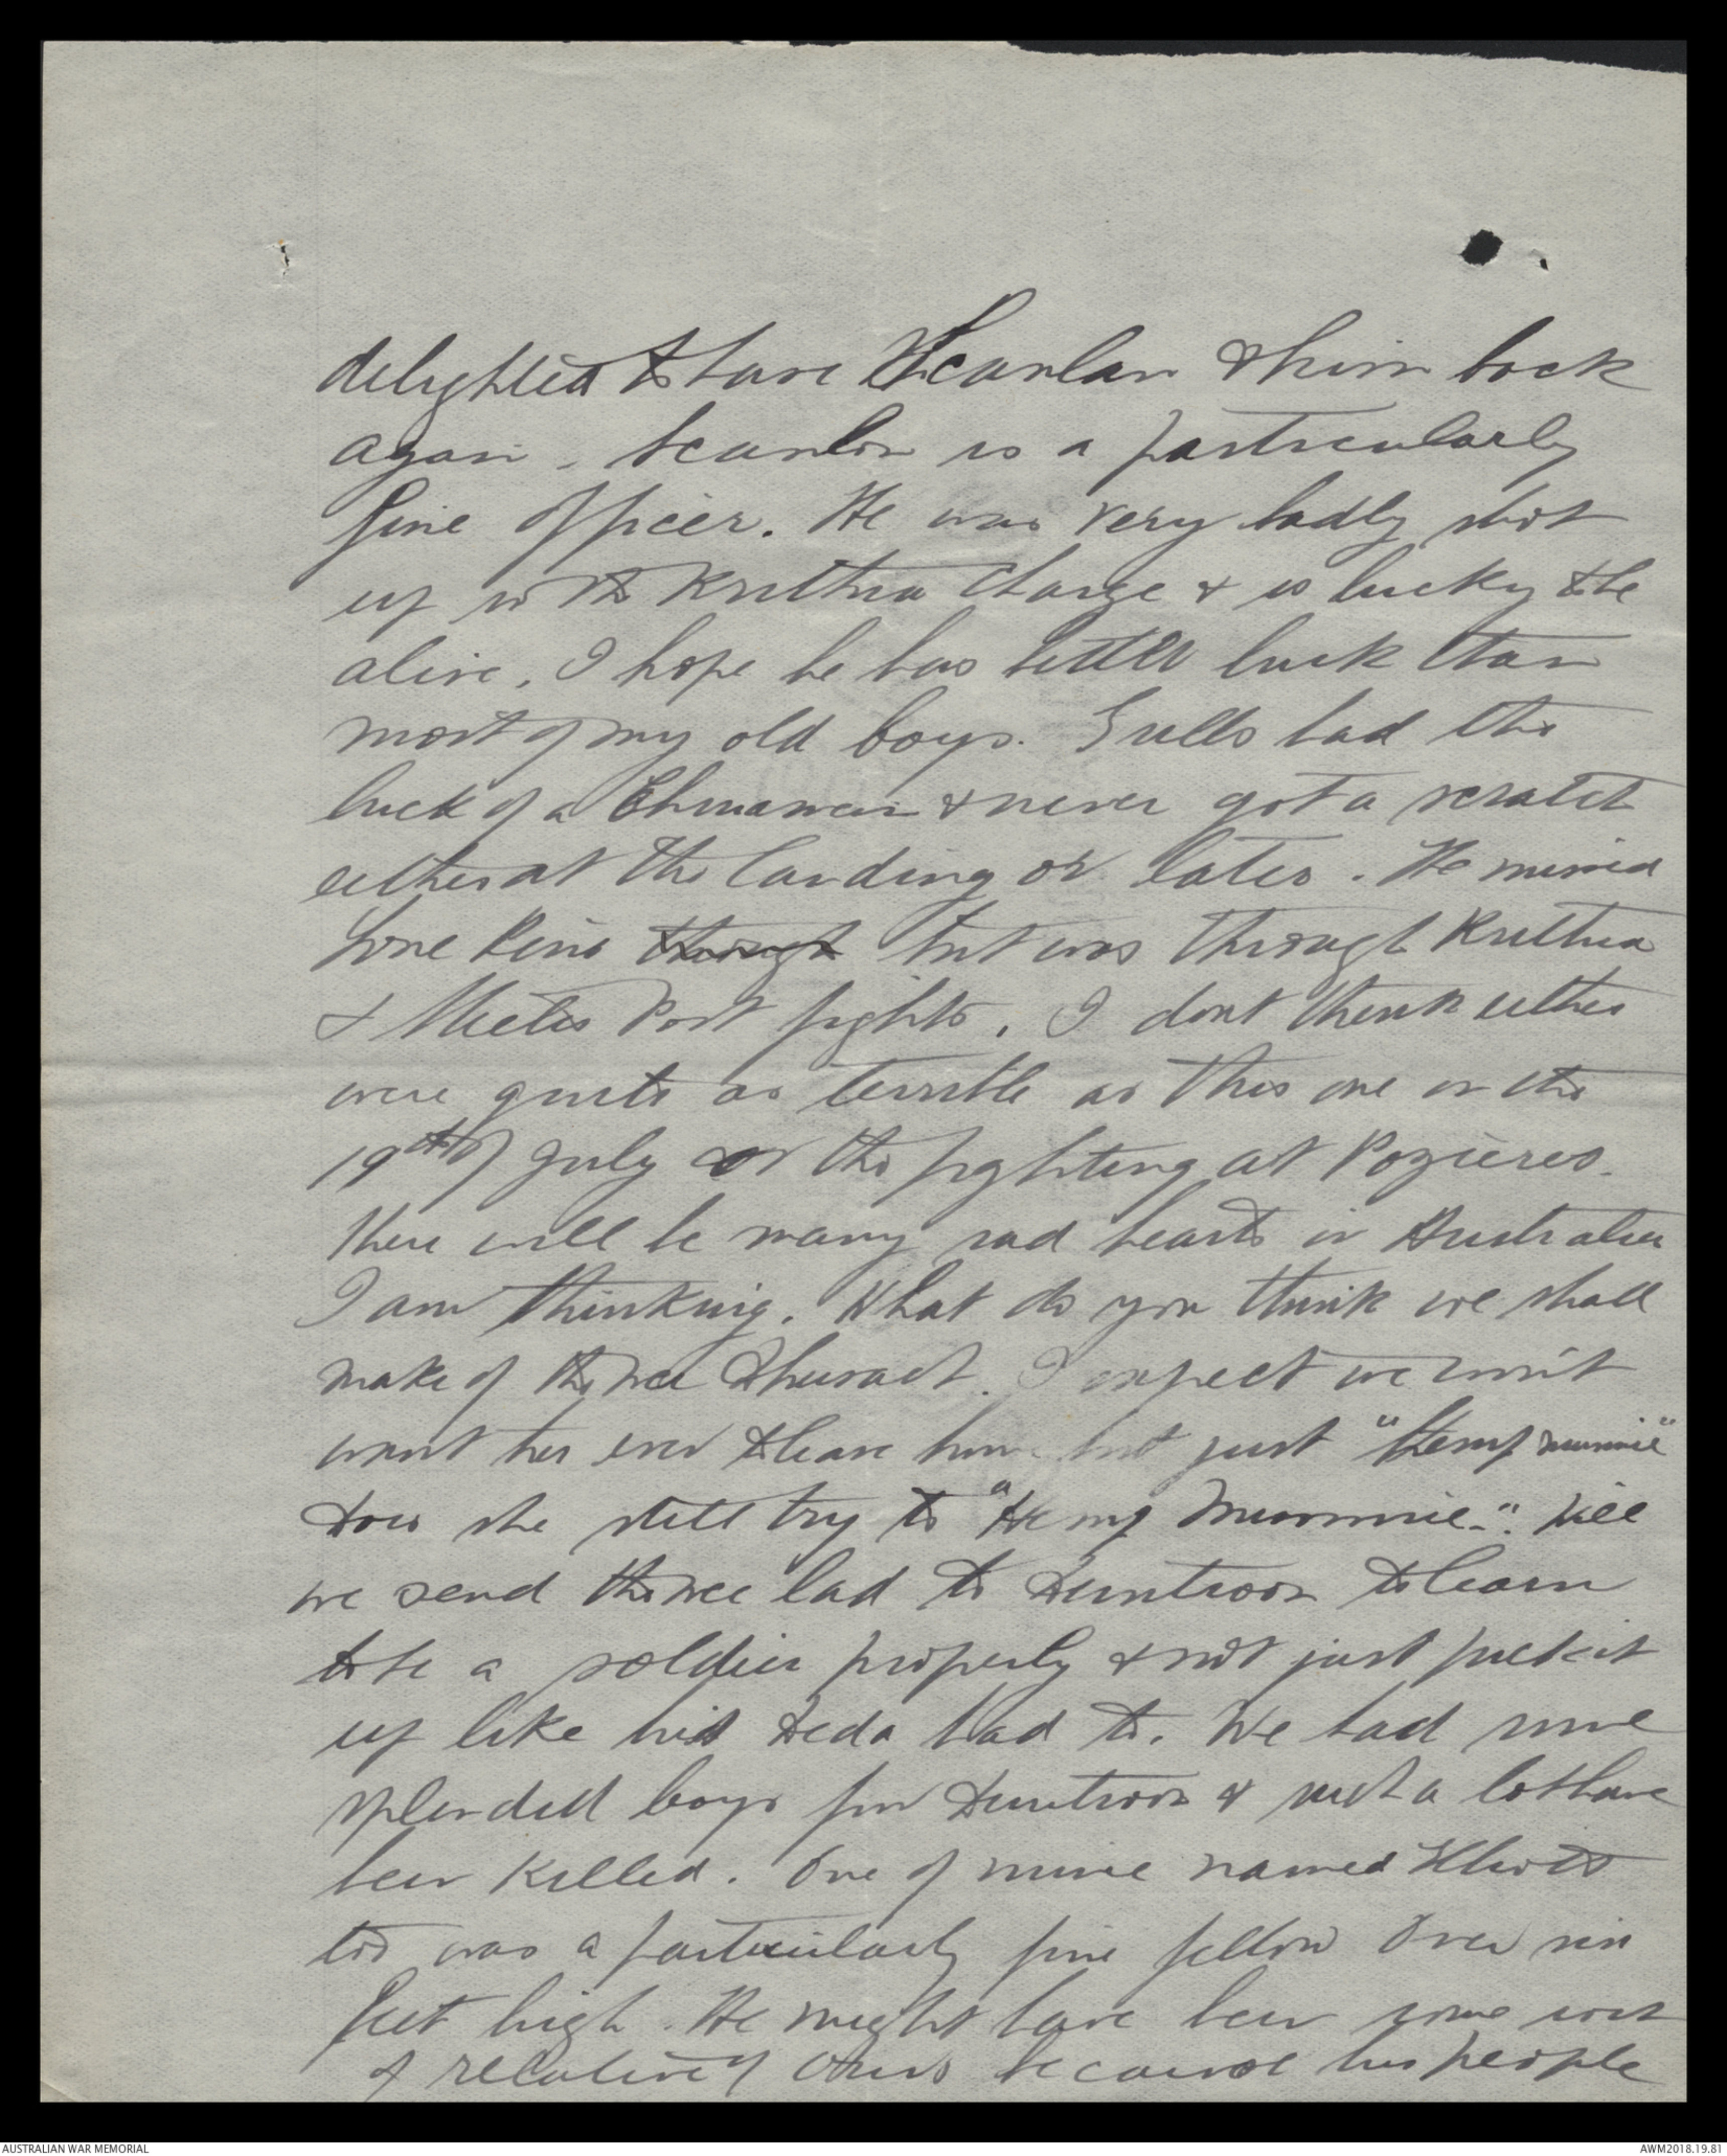 delighted to have Scanlan & him back
again. Scanlon is a particularly
fine officer. He was very badly shot
up in the Krithia charge & is lucky to be
alive. I hope he has better luck than
most of my old boys. Hells had the
luck of a Chinaman & never got a scratch
either at the landing or later. He missed
Lone Pine though but was through Krithia
& Steeles Post fights. I dont think either
were quite as terrible as this one on the
19th of July or the fighting at Pozieres.
There will be many sad hearts in Australia
I am thinking. What do you think we shall
make of the wee I expect we won't
want her ever to leave home but just "hemp mummie"
Does she still try to "Hemp Mummie". Will
we send the wee lad to Duntroon to learn
to be a soldier properly & not just pick it
up like his Deda had to. We had some
splendid boys from Duntroon & such a lot have
been killed. One of mine named Elliott
too was a particularly fine fellow over six
feet high. He might have been some sort
of relative of ours because his people
AUSTRALIAN WAR MEMORIAL
AWM2018.19.81